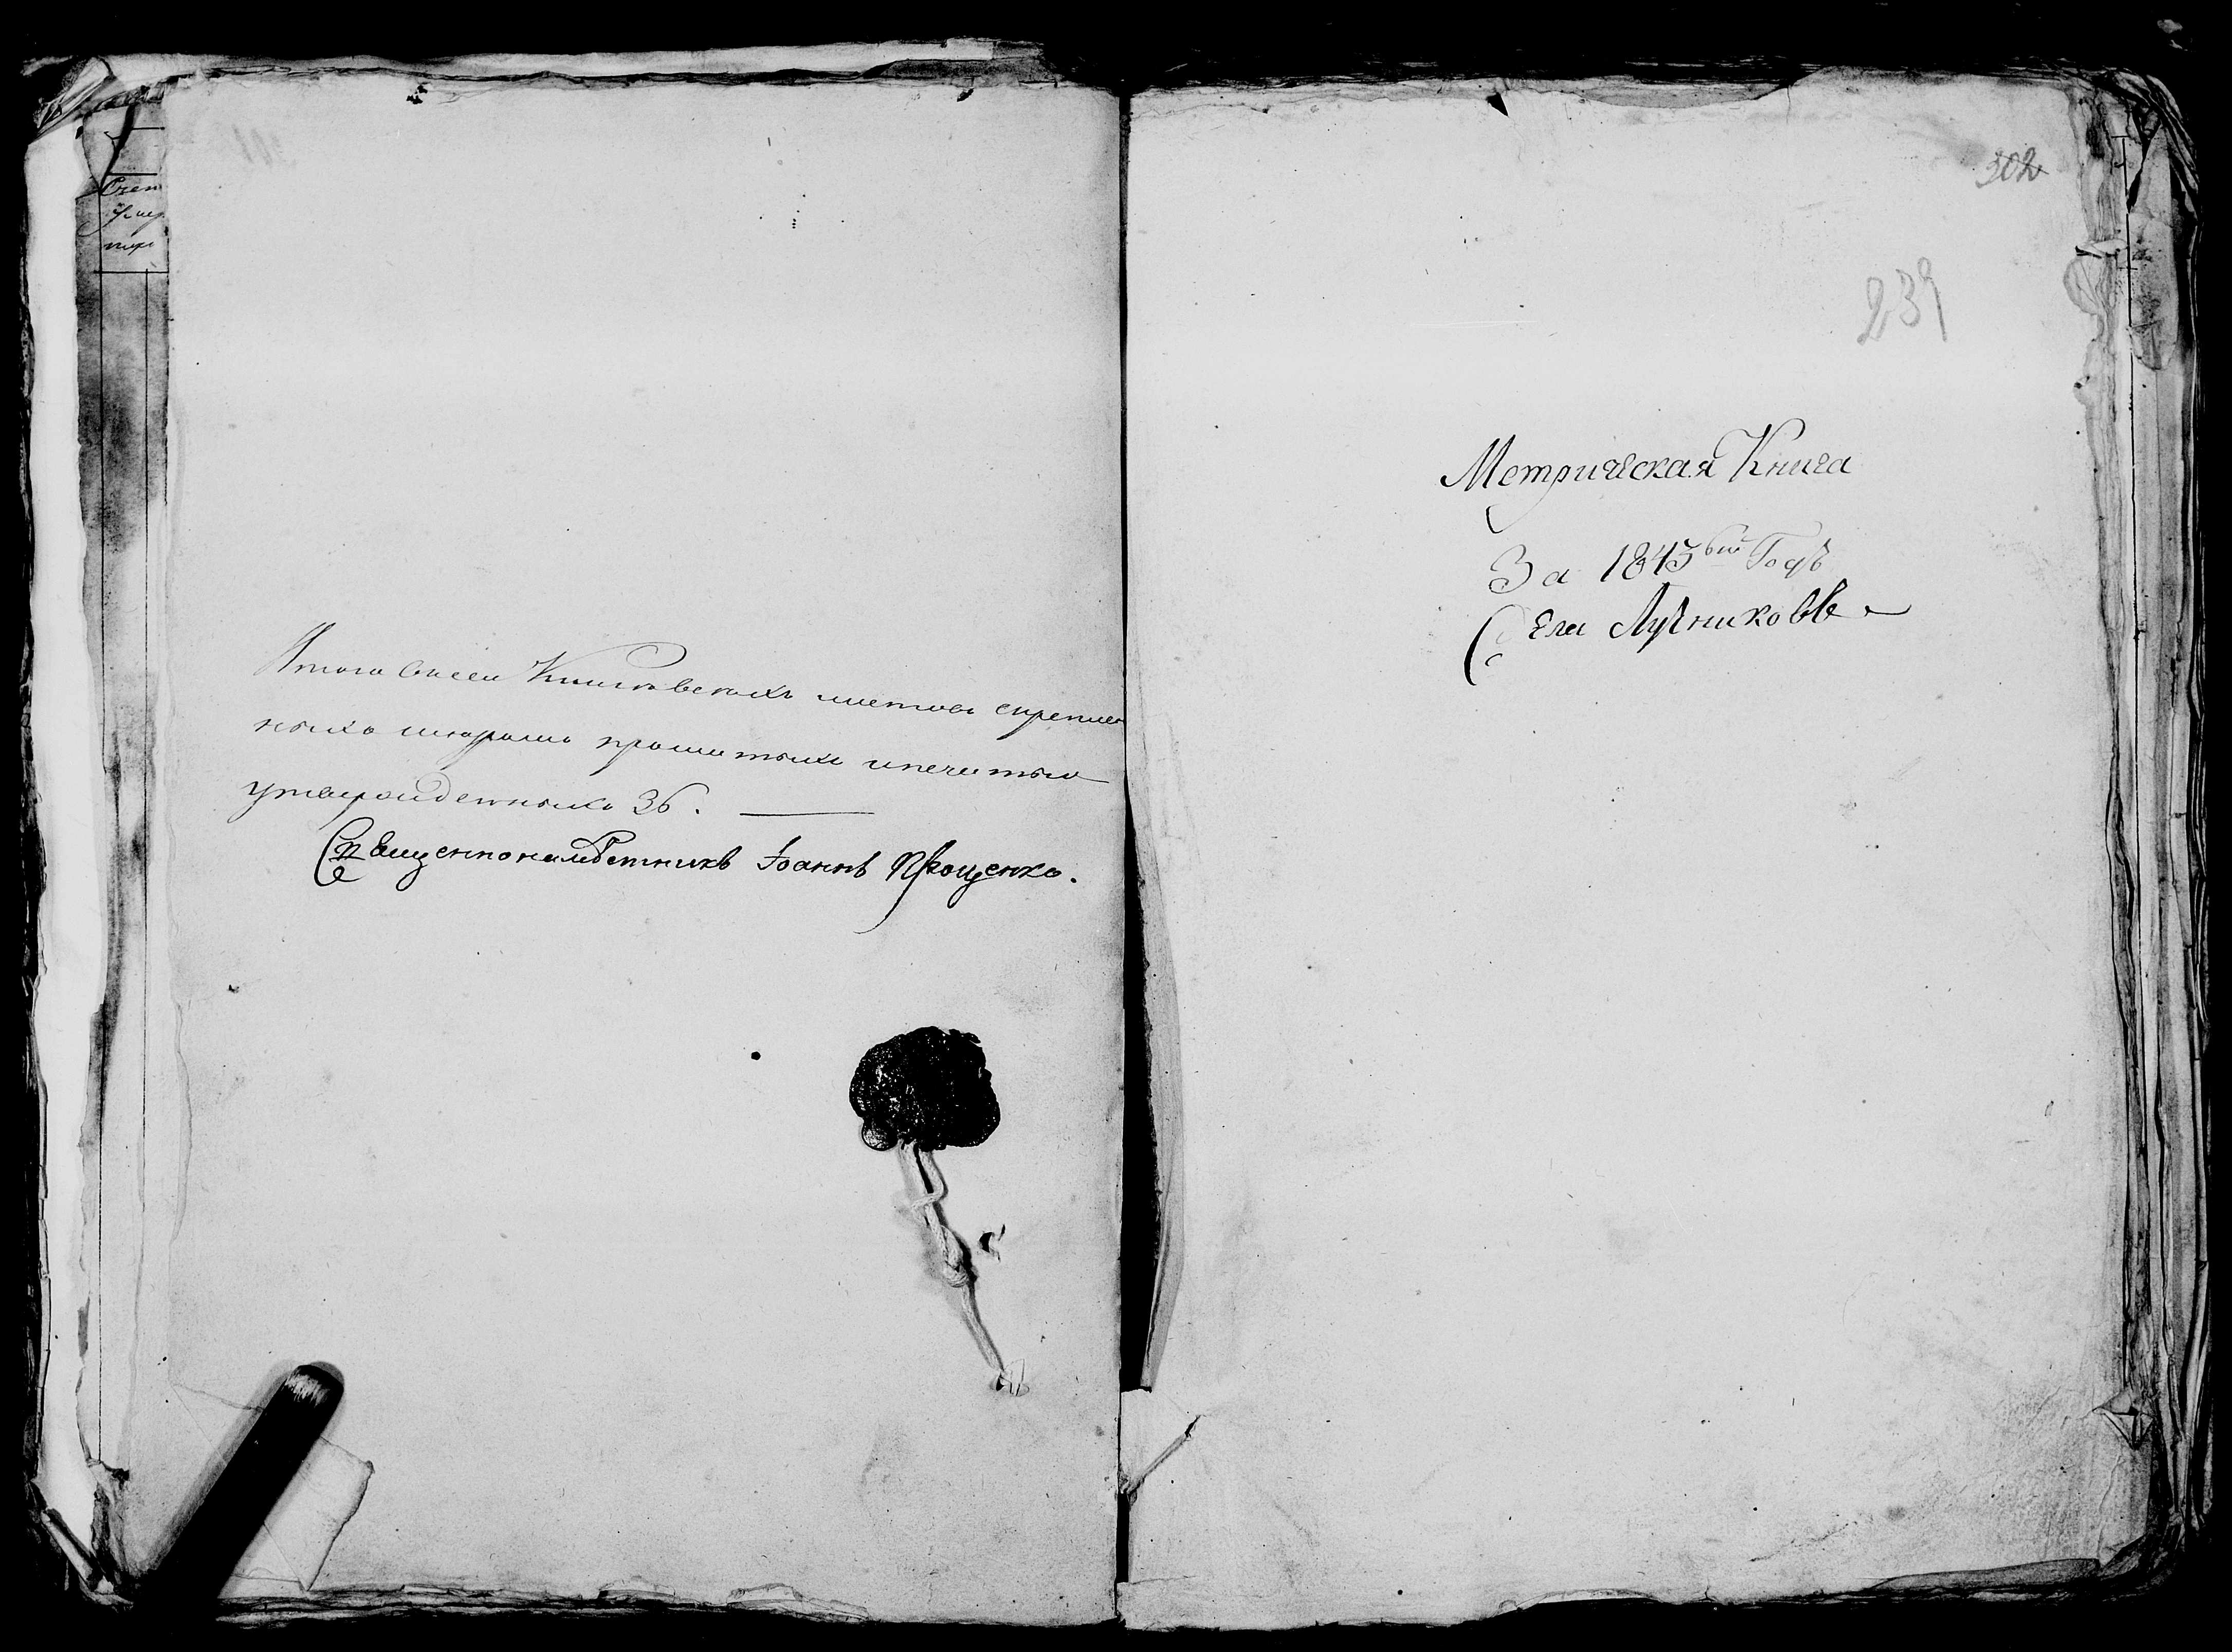 Итого всей Книги всехъ листовъ скреплен
ныхъ шнуромъ прошитыхъ ипечатью
утвержденныхъ 36.
Священнонамѣстникъ Іоаннъ Проценко.
302
239
Метрическая Книга
За 1845вый Годъ
Села Лучниковъ